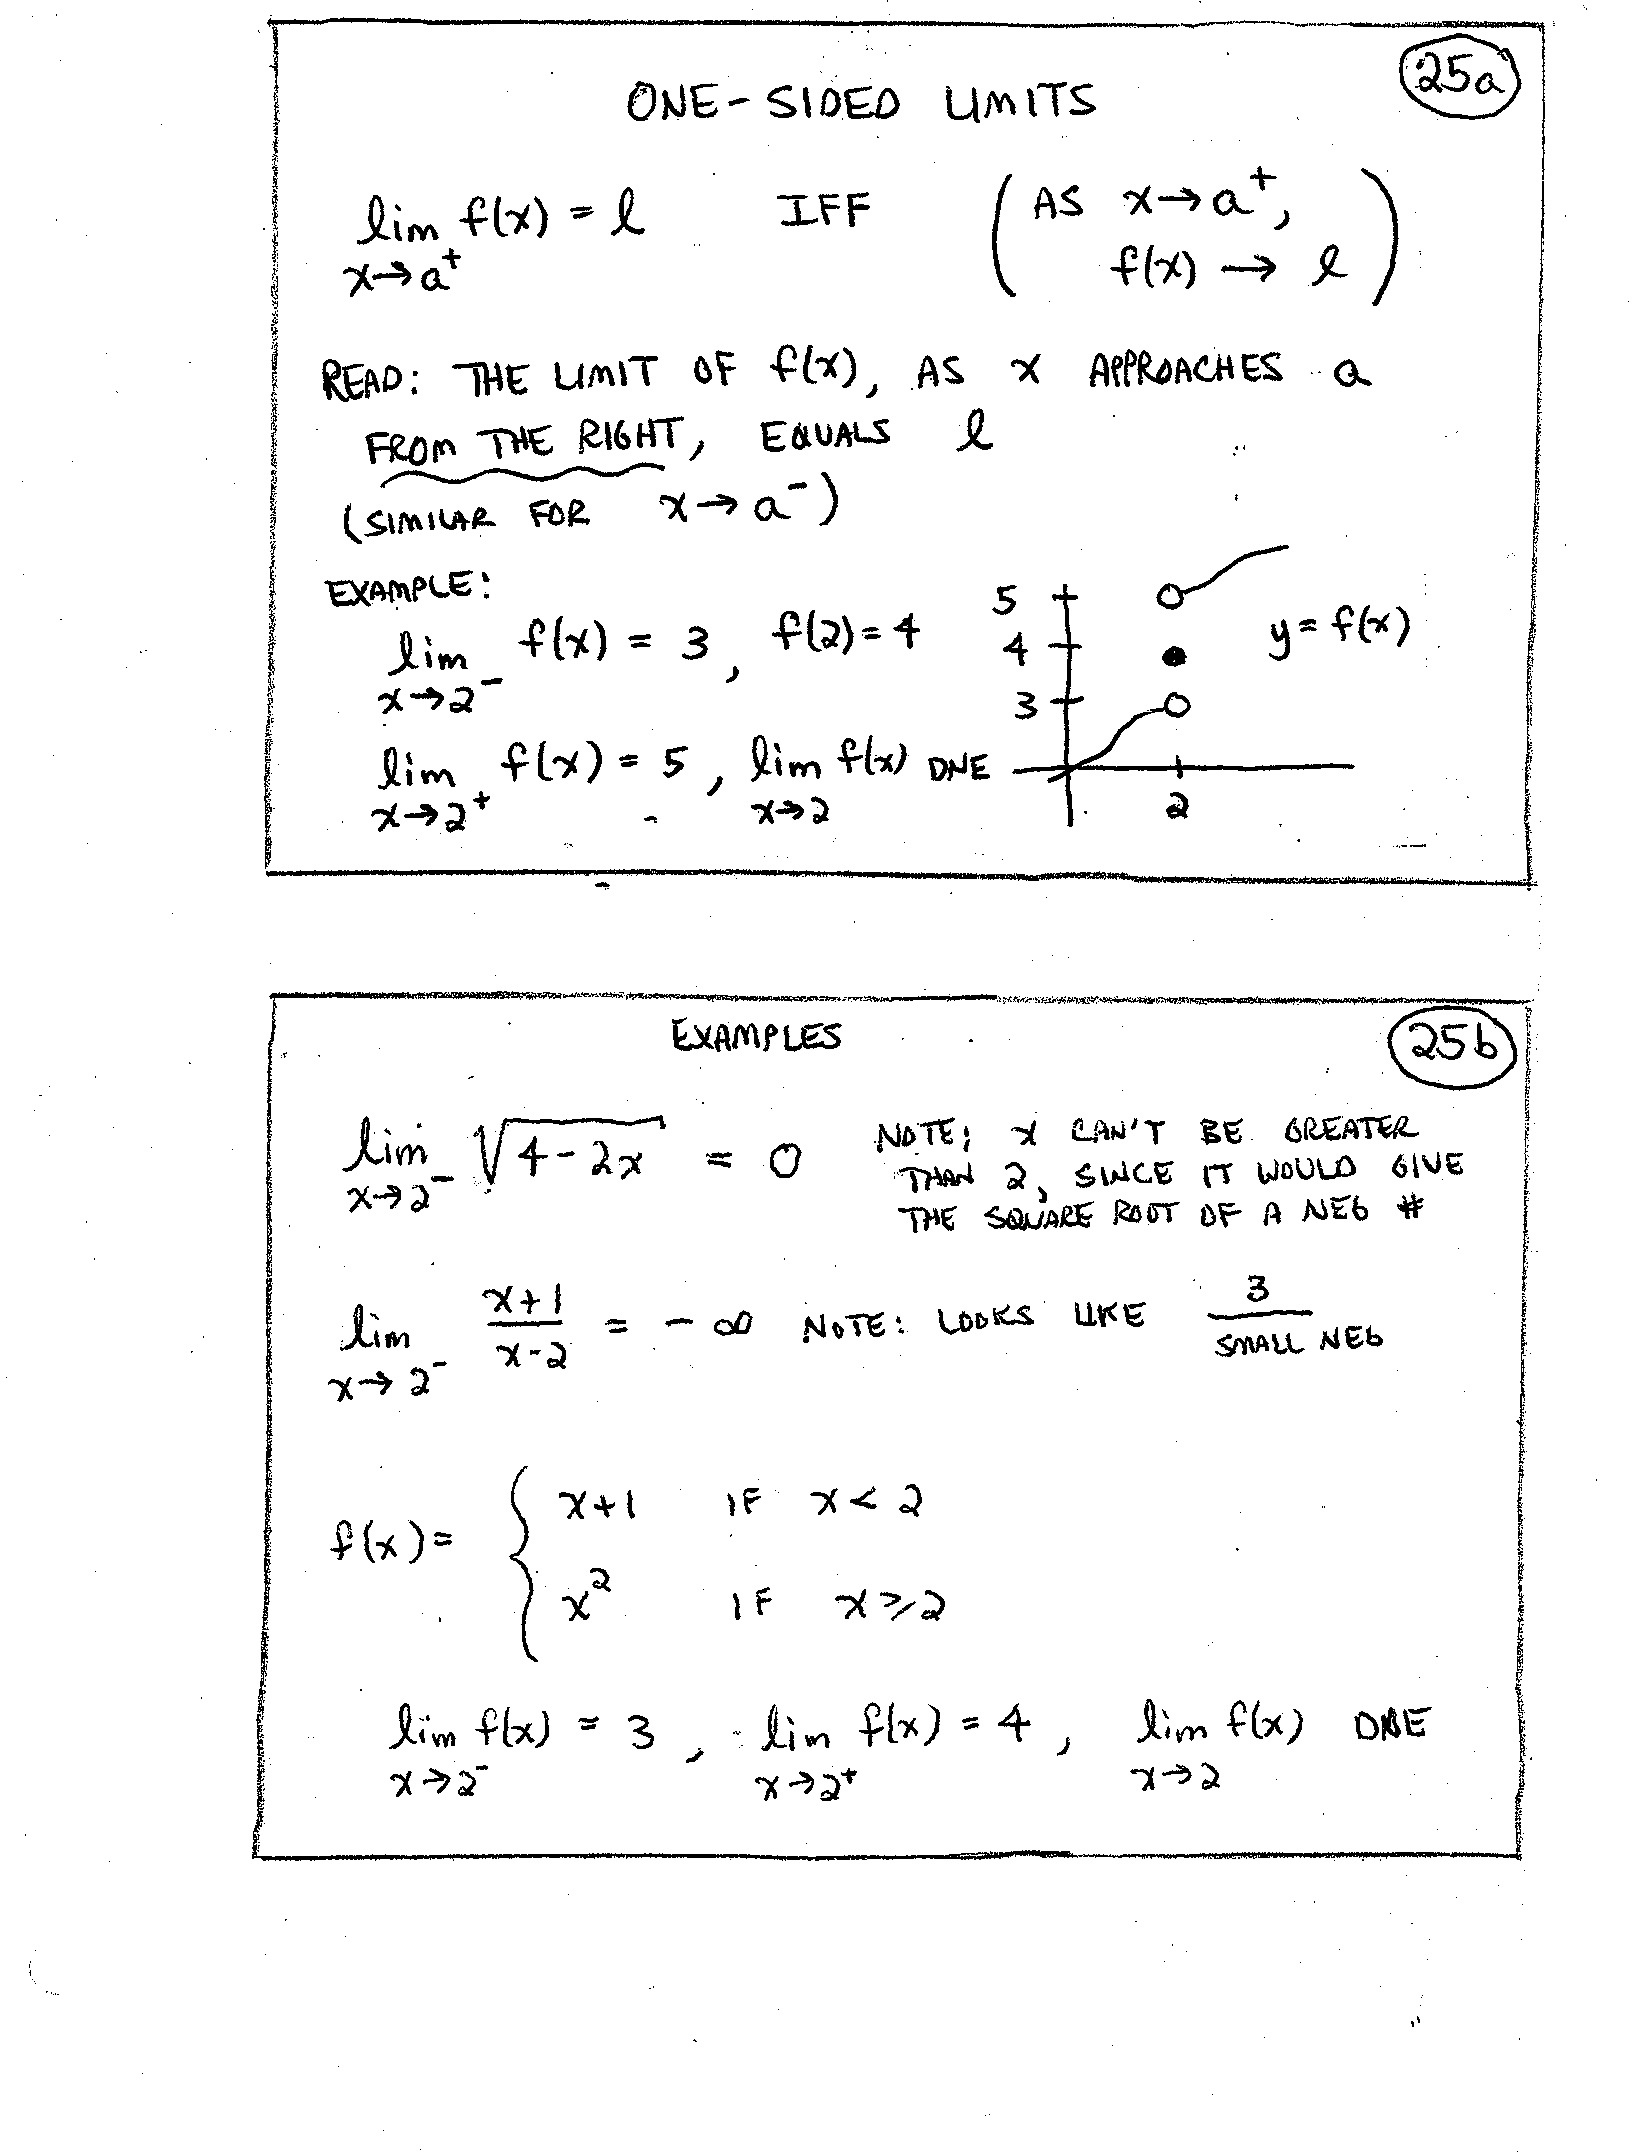 25a
ONE-SIDED LIMITS
lim f(x) = l IFF ( AS x→a⁺,
x→a⁺ f(x) → l )
READ: THE LIMIT OF f(x), AS x APPROACHES a
FROM THE RIGHT, EQUALS l
(SIMILAR FOR x→a⁻)
EXAMPLE:
lim f(x) = 3, f(2)=4
x→2⁻
lim f(x) = 5, lim f(x) DNE
x→2⁺ x→2
5
4
3
2
y=f(x)
EXAMPLES
25b
lim √(4-2x) = 0
x→2⁻
NOTE: x CAN'T BE GREATER
THAN 2, SINCE IT WOULD GIVE
THE SQUARE ROOT OF A NEG #
lim (x+1)/(x-2) = -∞ NOTE: LOOKS LIKE 3/SMALL NEG
x→2⁻
f(x)= { x+1 IF x<2
x² IF x≥2
lim f(x) = 3, lim f(x) = 4, lim f(x) DNE
x→2⁻ x→2⁺ x→2